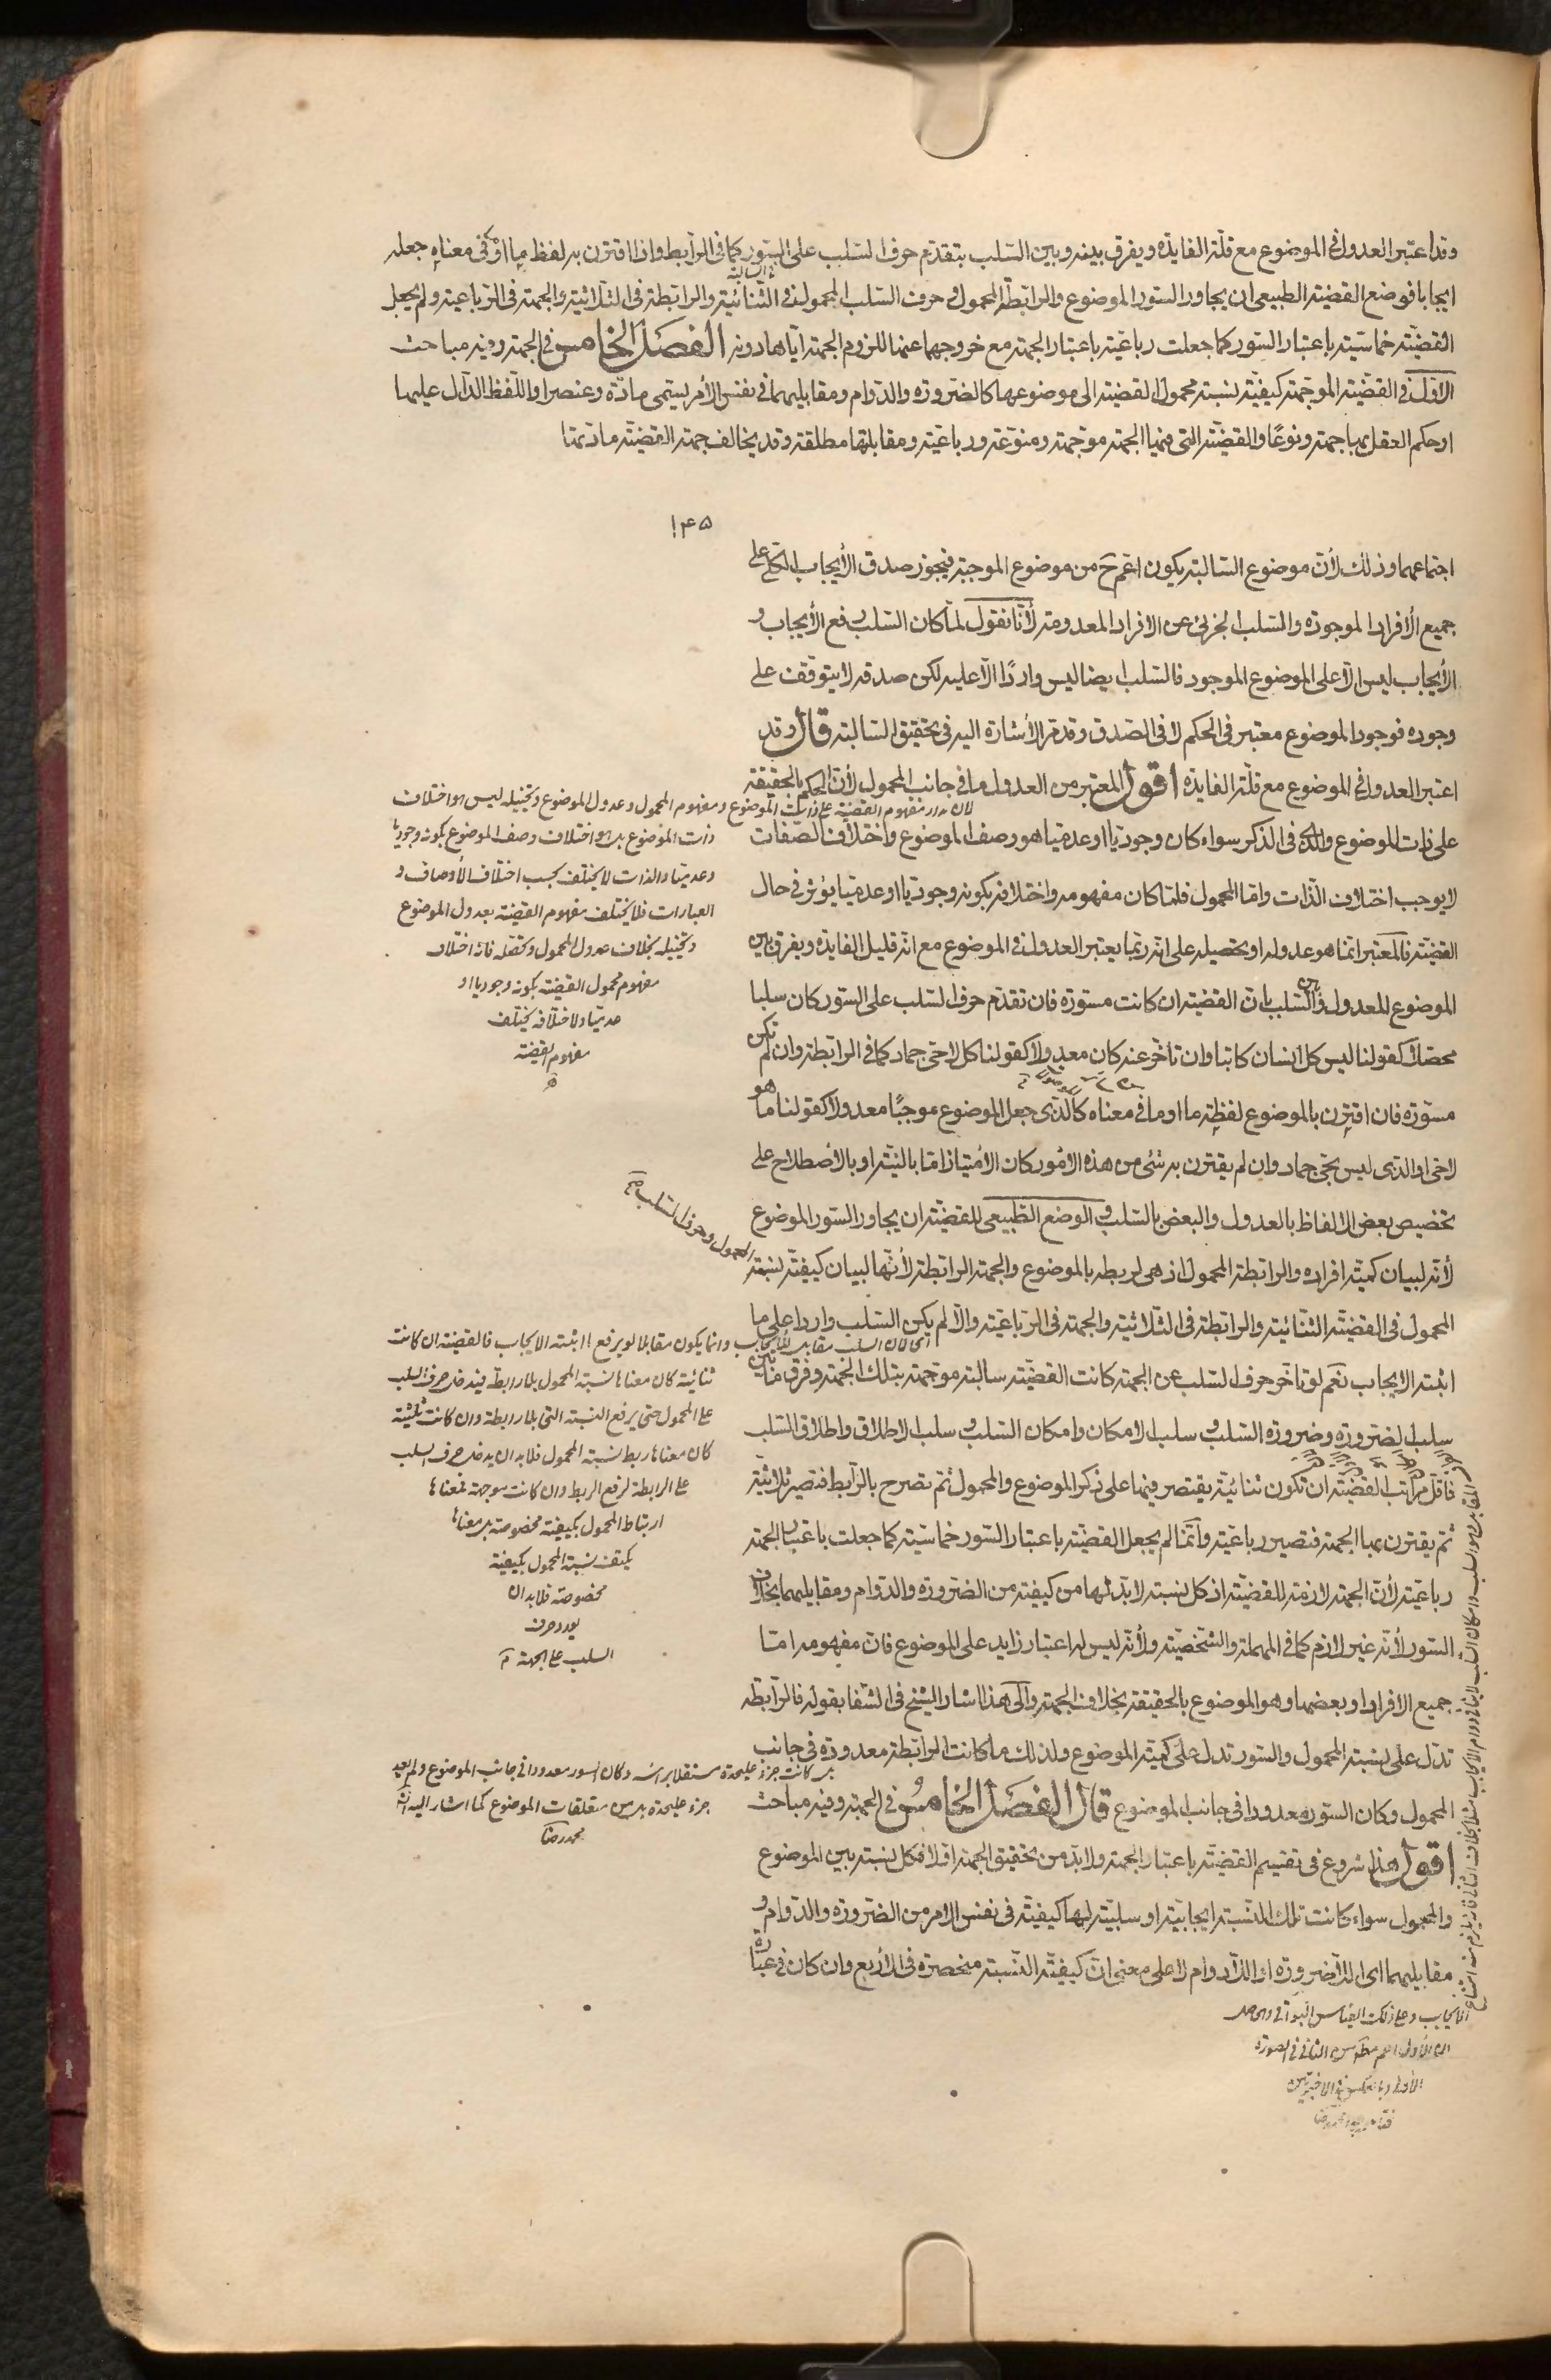 وقد اعتبر العدول فى الموضوع مع قلّة الفايدة ويفرق بينه وبين السّلب بتقدّم حرف السّلب على السّور كما فى الرّابط واذا اقترن به لفظ ما او ما فى معناه جعله
ايجابا فوضع القضيّة الطبيعى ان يجاور السّور الموضوع والرابطة المحمول وحرف السّلب المحمول فى الثّنائيّة والرابطة فى الثّلاثيّة والجهة فى الرّباعيّة ولم يجعل
القضيّة خماسيّة باعتبار السّور كما جعلت رباعيّة باعتبار الجهة مع خروجهما عنها للزوم الجهة ايّاها دونه الفصل الخامس فى الجهة وفيه مباحث
الاوّل فى القضيّة الموجّهة كيفيّة نسبة محمول القضيّة الى موضوعها كالضّرورة والدّوام ومقابليهما فى نفس الأمر يسمّى مادّة وعنصرا واللّفظ الدّالّ عليها
او حكم العقل بها جهة ونوعًا والقضيّة التى فيها الجهة موجّهة ومنوّعة ورباعيّة ومقابلتها مطلقة وقد يخالف جهة القضيّة مادّتها
١٤٥
اجتماعهما وذلك لأنّ موضوع السّالبة يكون اعمّ ح من موضوع الموجبة فيجوز صدق الأيجاب الكلّى على
جميع الأفراد الموجودة والسّلب الجزئى عن الافراد المعدومة لأنّا نقول لمّا كان السّلب رفع الأيجاب و
الأيجاب ليس الّا على الموضوع الموجود فالسّلب ايضا ليس واردًا الّا عليه لكن صدقه لا يتوقّف على
وجوده فوجود الموضوع معتبر فى الحكم لا فى الصّدق وقد مرّ الأشارة اليه فى تحقيق السّالبة قال وقد
اعتبر العدول فى الموضوع مع قلّة الفايدة اقول المعتبر من العدول ما فى جانب المحمول لأنّ الحكم بالحقيقة
على ذات الموضوع والّذى فى الذّكر سواء كان وجوديّا او عدميّا هو وصف الموضوع واختلاف الصّفات
لا يوجب اختلاف الذّات وامّا المحمول فلمّا كان مفهومه واختلافه بكونه وجوديّا او عدميّا يؤثر فى حال
القضيّة فالمعتبر انّما هو عدوله او تحصيله على انّه ربّما يعتبر العدول فى الموضوع مع انّه قليل الفايدة ويفرق بين
الموضوع المعدول وبين السّلب بانّ القضيّة ان كانت مسوّرة فان تقدّم حرف السّلب على السّور كان سلبا
محصّلا كقولنا ليس كلّ انسان كاتبا وان تأخّر عنه كان معدولا كقولنا كلّ لا حىّ جماد كما فى الرابطة وان لم تكن
مسوّرة فان اقترن بالموضوع لفظة ما او ما فى معناه كالّذى جعل الموضوع موجبًا معدولا كقولنا ما هو
لا حىّ او الّذى ليس بحىّ جماد وان لم يقترن به شئ من هذه الأمور كان الأمتياز امّا بالنيّة او بالأصطلاح على
تخصيص بعض الالفاظ بالعدول والبعض بالسّلب والوضع الطّبيعى للقضيّة ان يجاور السّور الموضوع
لأنّه لبيان كميّة افراده والرابطة المحمول اذ هى لربطه بالموضوع والجهة الرابطة لأنّها لبيان كيفيّة نسبة المحمول وحرف السّلب
المحمول فى القضيّة الثّنائيّة والرابطة فى الثّلاثيّة والجهة فى الرّباعيّة والّا لم يكن السّلب واردا على ما
اثبته الايجاب نعم لو تأخّر حرف السّلب عن الجهة كانت القضيّة سالبة موجّهة بتلك الجهة وفرق ما بين
سلب الضّرورة وضرورة السّلب وسلب الامكان وامكان السّلب وسلب الاطلاق واطلاق السّلب
فاقلّ مراتب القضيّة ان تكون ثنائيّة يقتصر فيها على ذكر الموضوع والمحمول ثمّ تصرح بالرّابط فتصير ثلاثيّة
ثمّ يقترن بها الجهة فتصير رباعيّة وانّما لم يجعل القضيّة باعتبار السّور خماسيّة كما جعلت باعتبار الجهة
رباعيّة لأنّ الجهة لازمة للقضيّة اذ كلّ نسبة لا بدّ لها من كيفيّة من الضّرورة والدّوام ومقابليهما بخلاف
السّور لأنّه غير لازم كما فى المهملة والشّخصيّة ولأنّه ليس له اعتبار زايد على الموضوع فانّ مفهومه امّا
جميع الافراد او بعضها وهو الموضوع بالحقيقة بخلاف الجهة والى هذا اشار الشيخ فى الشّفا بقوله فالرّابطة
تدلّ على نسبة المحمول والسّور تدلّ على كميّة الموضوع ولذلك ما كانت الرابطة معدودة فى جانب
المحمول وكان السّور معدودا فى جانب الموضوع قال الفصل الخامس فى الجهة وفيه مباحث
اقول هذا شروع فى تقسيم القضيّة باعتبار الجهة ولا بدّ من تحقيق الجهة اوّلا فكلّ نسبة بين الموضوع
والمحمول سواء كانت تلك النّسبة ايجابيّة او سلبيّة لها كيفيّة فى نفس الامر من الضّرورة والدّوام و
مقابليهما اى اللّا ضرورة او اللّا دوام لا على معنى انّ كيفيّة النّسبة منحصرة فى الأربع وان كان فى عبارة
لان مدار مفهوم القضية على ذات الموضوع ومفهوم المحمول وعدول الموضوع وتحصيله ليس الا اختلاف
ذات الموضوع بل هو اختلاف وصف الموضوع بكونه وجوديا
وعدميا والذات لا يختلف بحسب اختلاف الأوصاف و
العبارات فلا يختلف مفهوم القضية بعدول الموضوع
وتحصيله بخلاف عدول المحمول وتحصله فانه اختلاف
مفهوم محمول القضية بكونه وجوديا او
عدميا ولاختلافه يختلف
مفهوم القضية
اى لان السلب مقابل الأيجاب وانما يكون مقابلا لو يرفع ما اثبته الايجاب فالقضية ان كانت
ثنائية كان معناها نسبة المحمول بلا رابطة فيدخل حرف السلب
على المحمول حتى يرفع النسبة التى بلا رابطة وان كانت ثلثية
كان معناها ربط نسبة المحمول فلا بد ان يدخل حرف السلب
على الرابطة لرفع الربط وان كانت موجهة فمعناها
ارتباط المحمول بكيفية مخصوصة بل معناها
يكيف نسبة المحمول بكيفية
مخصوصة فلا بد ان
يورد حرف
السلب على الجهة
بل كانت جزء عليحدة مستقلا برأسه وكان السور معدودا فى جانب الموضوع ولم يعد
جزء عليحدة بل من متعلقات الموضوع كما اشار اليه
محمد رضا